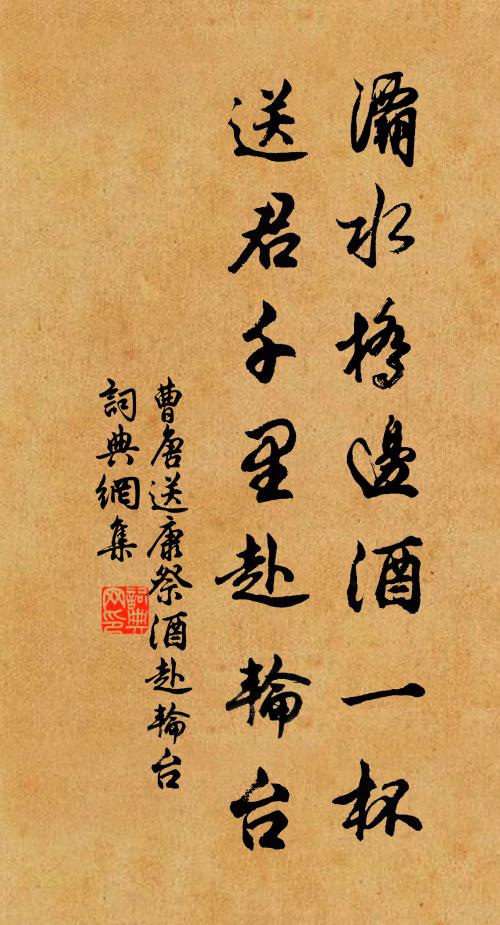 灞水橋邊酒一杯
送君千里赴輪台
曹唐送康祭酒赴輪台
詞典網集
詞典网印